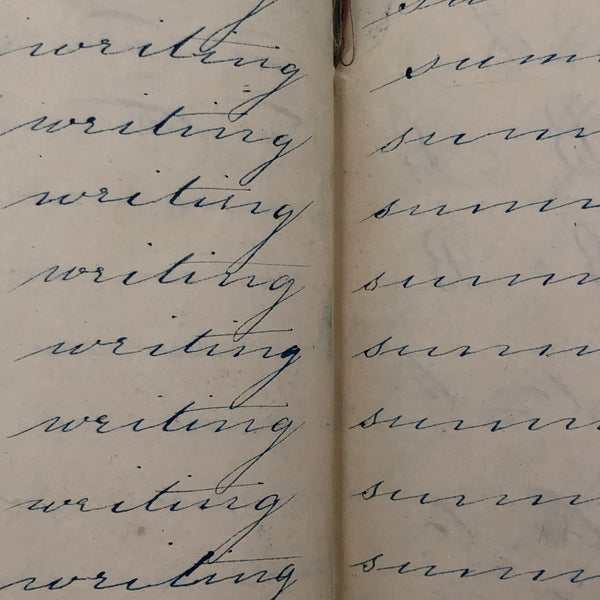 writing
writing
writing
writing
writing
writing
writing
writing
su
sum
sum
sum
sum
sum
sum
sum
sum